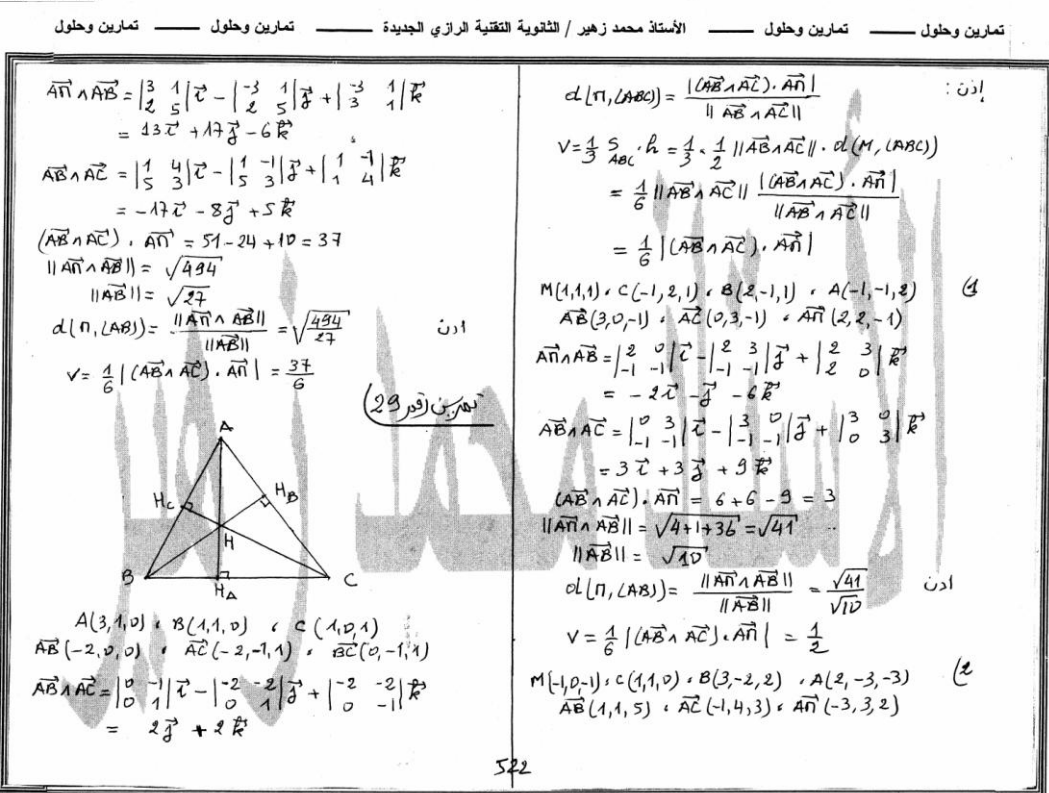 تمارين وحلول ــــــ تمارين وحلول ــــــ الأستاذ محمد زهير / الثانوية التقنية الرازي الجديدة ــــــ تمارين وحلول ــــــ تمارين وحلول
إذن : d(M,(ABC)) = |(AB⃗ ∧ AC⃗). AM⃗| / ||AB⃗ ∧ AC⃗||
V = 1/3 S_ABC . h = 1/3 . 1/2 ||AB⃗ ∧ AC⃗|| . d(M,(ABC))
= 1/6 ||AB⃗ ∧ AC⃗|| |(AB⃗ ∧ AC⃗). AM⃗| / ||AB⃗ ∧ AC⃗||
= 1/6 |(AB⃗ ∧ AC⃗). AM⃗|
(1 M(1,1,1) ، C(-1,2,1) ، B(2,-1,1) ، A(-1,-1,2)
AB⃗(3,0,-1) ، AC⃗(0,3,-1) ، AM⃗(2,2,-1)
AM⃗ ∧ AB⃗ = |2 0; -1 -1| i⃗ - |2 3; -1 -1| j⃗ + |2 3; 2 0| k⃗
= -2i⃗ - j⃗ - 6k⃗
AB⃗ ∧ AC⃗ = |0 3; -1 -1| i⃗ - |3 0; -1 -1| j⃗ + |3 0; 0 3| k⃗
= 3i⃗ + 3j⃗ + 9k⃗
(AB⃗ ∧ AC⃗). AM⃗ = 6+6-9 = 3
||AM⃗ ∧ AB⃗|| = √4+1+36 = √41
||AB⃗|| = √10
اذن d(M,(AB)) = ||AM⃗ ∧ AB⃗|| / ||AB⃗|| = √41 / √10
V = 1/6 |(AB⃗ ∧ AC⃗). AM⃗| = 1/2
(2 M(-1,0,-1) ، C(1,1,0) ، B(3,-2,2) ، A(2,-3,-3)
AB⃗(1,1,5) ، AC⃗(-1,4,3) ، AM⃗(-3,3,2)
AM⃗ ∧ AB⃗ = |3 1; 2 5| i⃗ - |-3 1; 2 5| j⃗ + |-3 1; 3 1| k⃗
= 13i⃗ + 17j⃗ - 6k⃗
AB⃗ ∧ AC⃗ = |1 4; 5 3| i⃗ - |1 -1; 5 3| j⃗ + |1 -1; 1 4| k⃗
= -17i⃗ - 8j⃗ + 5k⃗
(AB⃗ ∧ AC⃗). AM⃗ = 51-24+10 = 37
||AM⃗ ∧ AB⃗|| = √494
||AB⃗|| = √27
اذن d(M,(AB)) = ||AM⃗ ∧ AB⃗|| / ||AB⃗|| = √494/27
V = 1/6 |(AB⃗ ∧ AC⃗). AM⃗| = 37/6
تمرين رقم 29)
A
H_C H_B
H
B H_A C
A(3,1,0) ، B(1,1,0) ، C(1,0,1)
AB⃗(-2,0,0) ، AC⃗(-2,-1,1) ، BC⃗(0,-1,1)
AB⃗ ∧ AC⃗ = |0 -1; 0 1| i⃗ - |-2 -2; 0 1| j⃗ + |-2 -2; 0 -1| k⃗
= 2j⃗ + 2k⃗
522